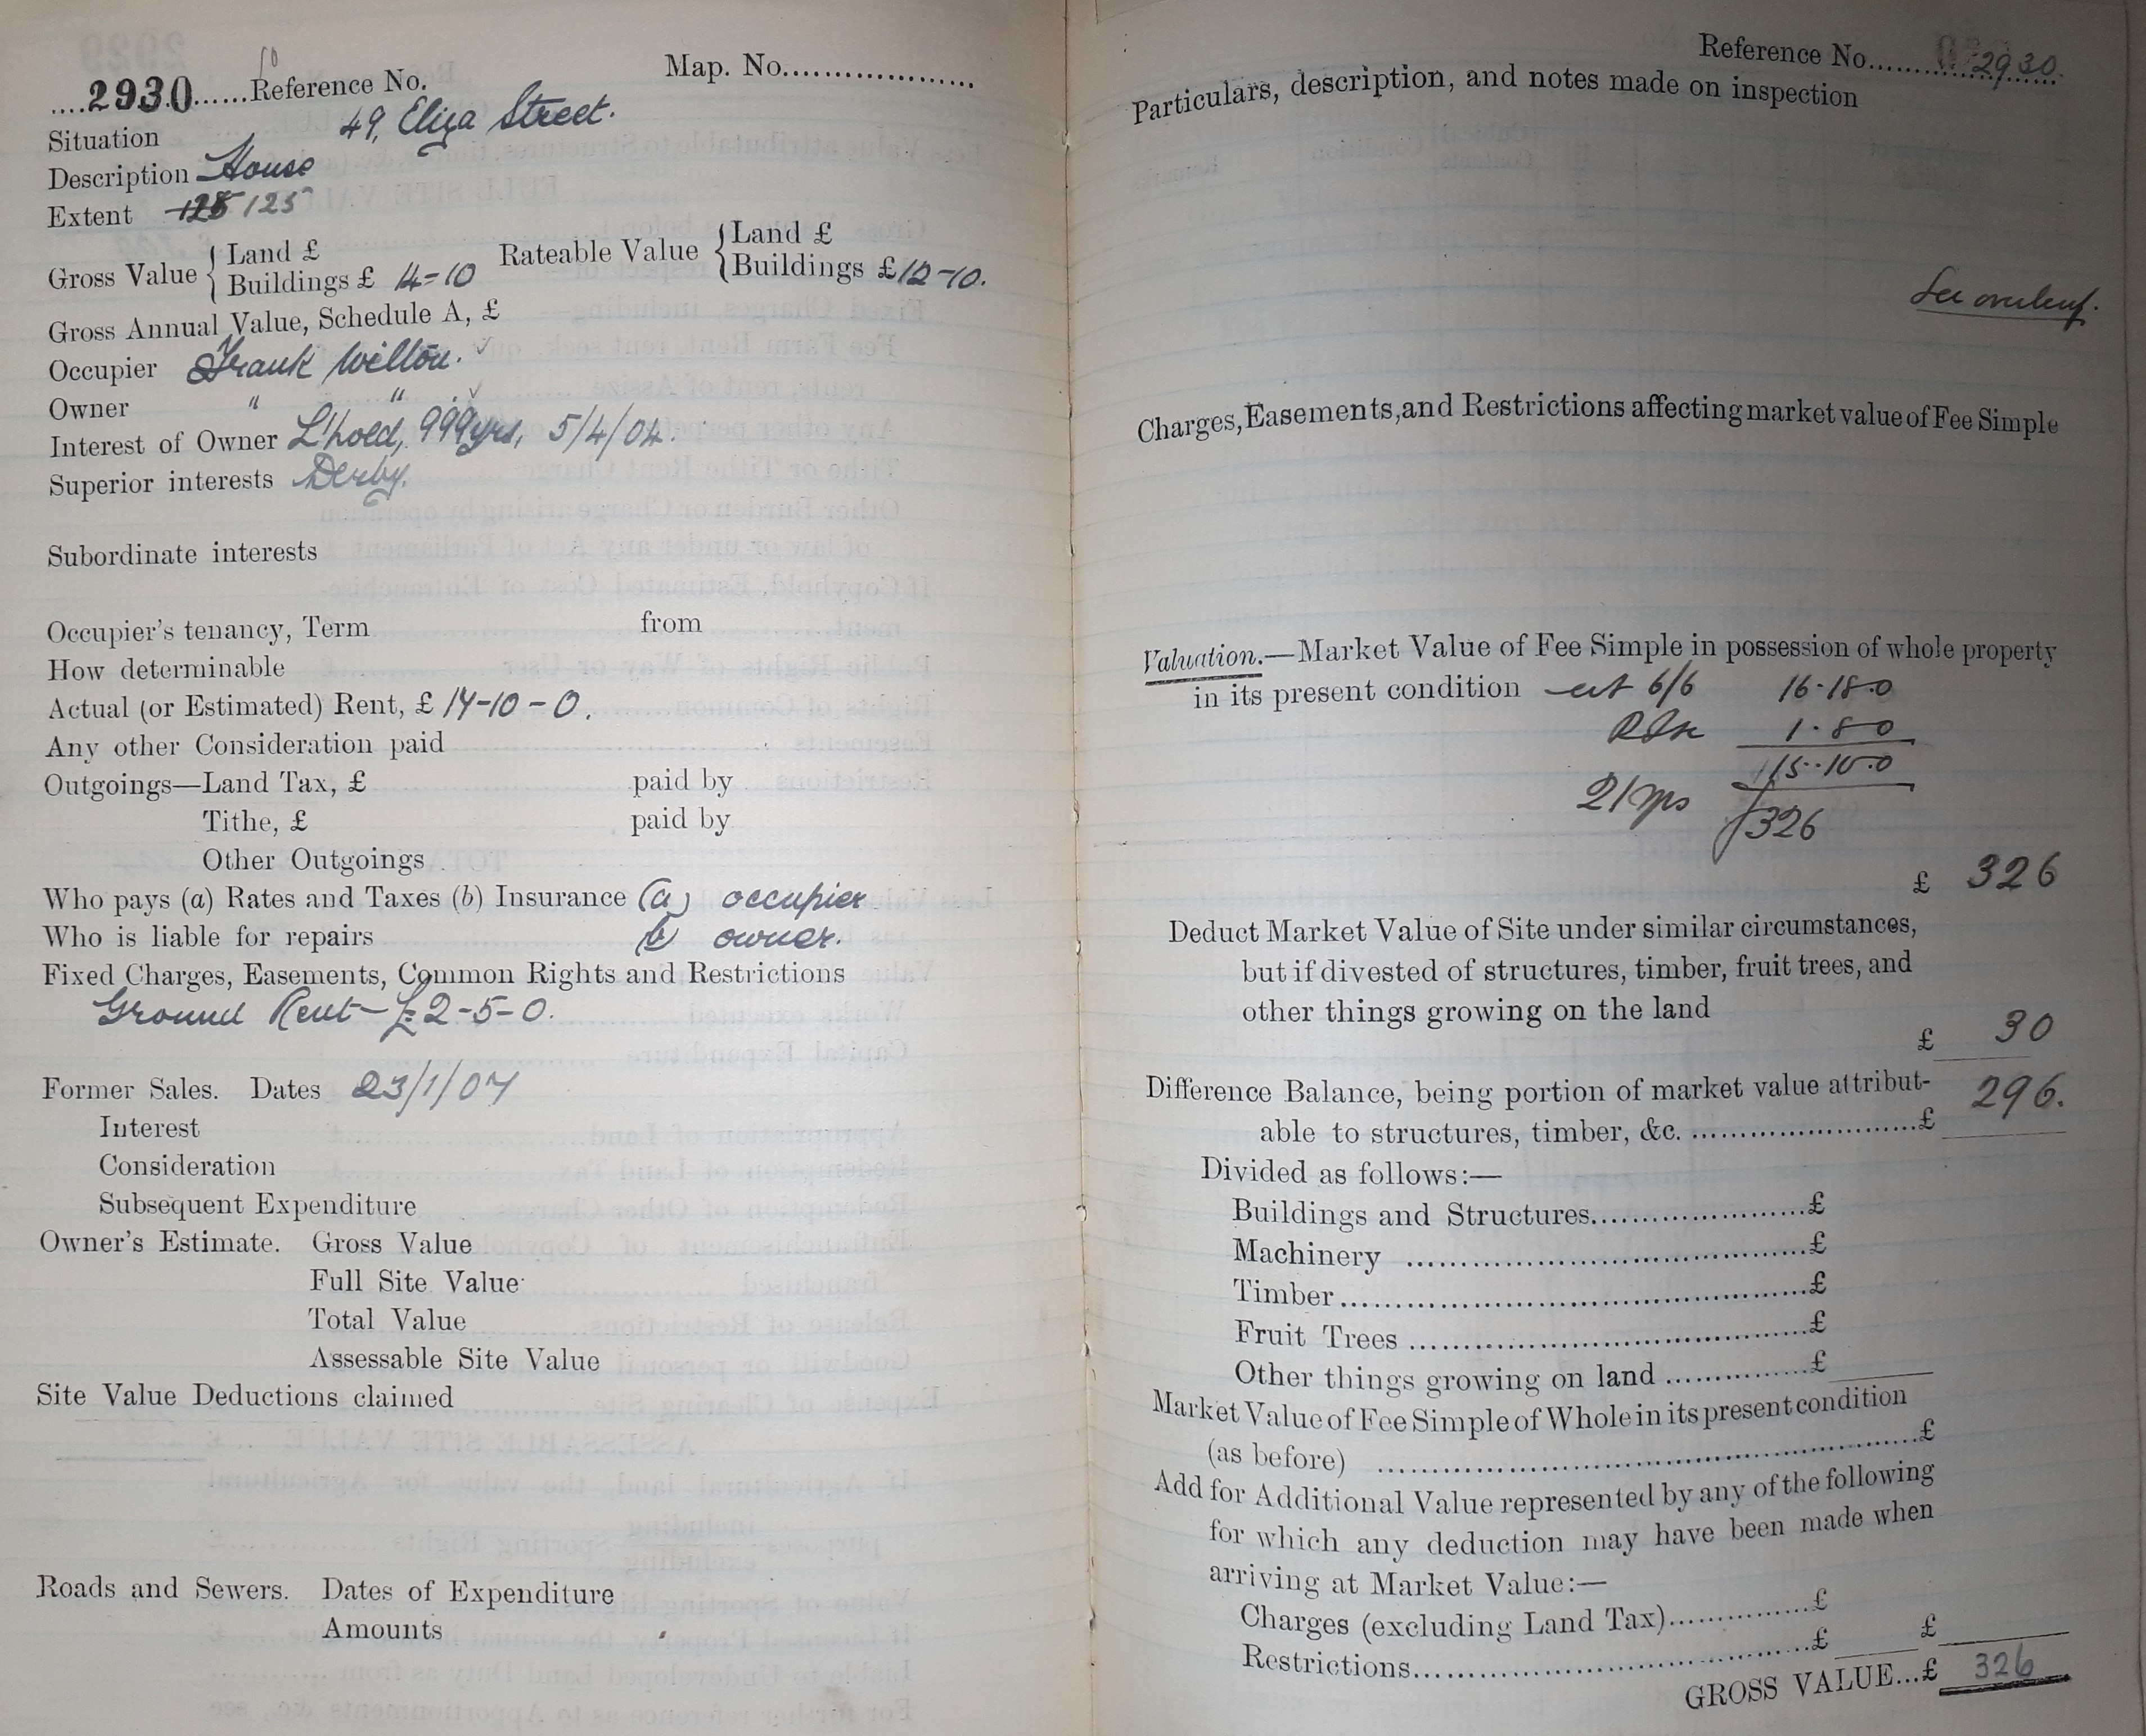 ....2930......Reference No. Map. No....................
Situation 49, Eliza Street.
Description House
Extent 125 
Gross Value { Land £ Rateable Value { Land £
Buildings £ 14-10 Buildings £12-10.
Gross Annual Value, Schedule A, £
Occupier Frank Wilton. ✓
Owner " "
Interest of Owner L'hold, 999yrs, 5/4/04.
Superior interests Derby.
Subordinate interests
Occupier's tenancy, Term from
How determinable
Actual (or Estimated) Rent, £ 14-10-0.
Any other Consideration paid
Outgoings—Land Tax, £ paid by
Tithe, £ paid by
Other Outgoings
Who pays (a) Rates and Taxes (b) Insurance (a) occupier
Who is liable for repairs (b) owner.
Fixed Charges, Easements, Common Rights and Restrictions
Ground Rent-£2-5-0.
Former Sales. Dates 23/1/07
Interest
Consideration
Subsequent Expenditure
Owner's Estimate. Gross Value
Full Site Value
Total Value
Assessable Site Value
Site Value Deductions claimed
Roads and Sewers. Dates of Expenditure
Amounts
Reference No. 2930.
Particulars, description, and notes made on inspection
See overleaf.
Charges, Easements, and Restrictions affecting market value of Fee Simple
Valuation.—Market Value of Fee Simple in possession of whole property
in its present condition at 6/6 16.18.0
1.8.0
15.10.0
21 yps £326
£ 326
Deduct Market Value of Site under similar circumstances,
but if divested of structures, timber, fruit trees, and
other things growing on the land
£ 30
Difference Balance, being portion of market value attribut-
able to structures, timber, &c. ........................£ 296.
Divided as follows:—
Buildings and Structures......................£
Machinery ........................................£
Timber..............................................£
Fruit Trees ........................................£
Other things growing on land ...............£
Market Value of Fee Simple of Whole in its present condition
(as before) ........................................................£
Add for Additional Value represented by any of the following
for which any deduction may have been made when
arriving at Market Value:—
Charges (excluding Land Tax)...............£
Restrictions.........................................£ £
GROSS VALUE...£ 326